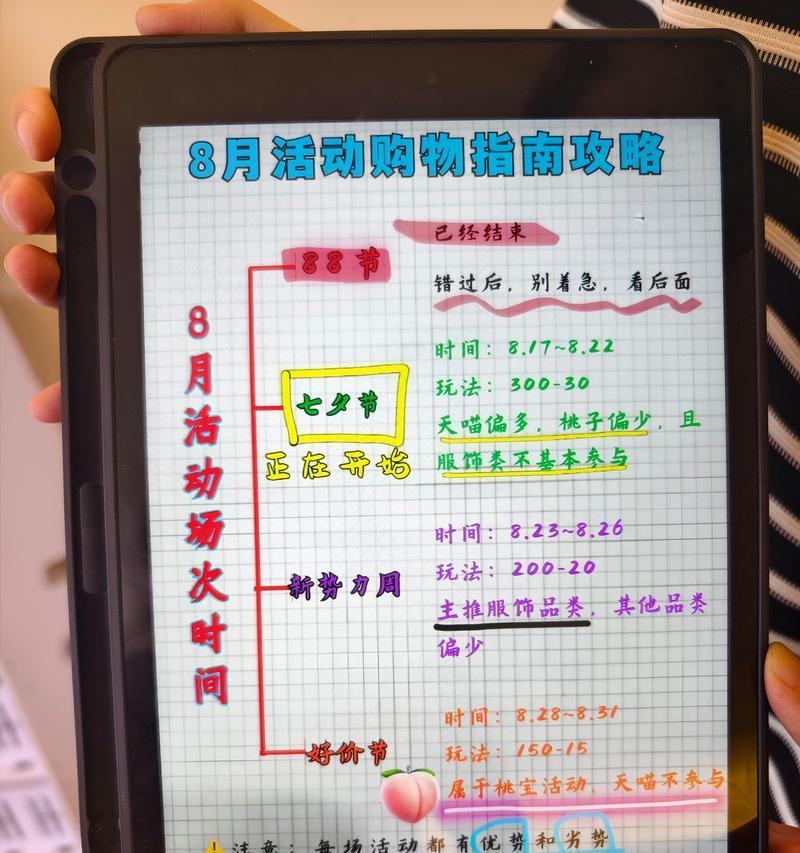 8月活动购物指南攻略
8月活动场次时间
88节
已经结束
错过后，别着急，看后面
七夕节
正在开始
时间：8.17~8.22
玩法：300-30
天喵偏多，桃子偏少，且
服饰类不基本参与
新势力周
时间：8.23~8.26
玩法：200-20
主推服饰品类，其他品类
偏少
好价节
时间：8.28~8.31
玩法：150-15
属于桃宝活动，天喵不参与
注意：每场活动都有优势和劣势